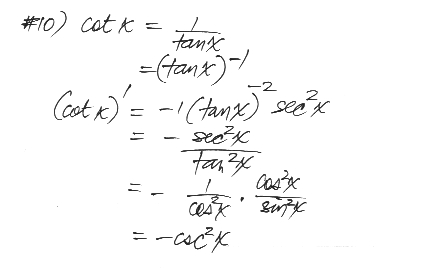 #10) cot x = 1/tanx
= (tanx)^-1
(cot x)' = -1 (tanx)^-2 sec^2x
= - sec^2x/tan^2x
= - 1/cos^2x · cos^2x/sin^2x
= -csc^2x